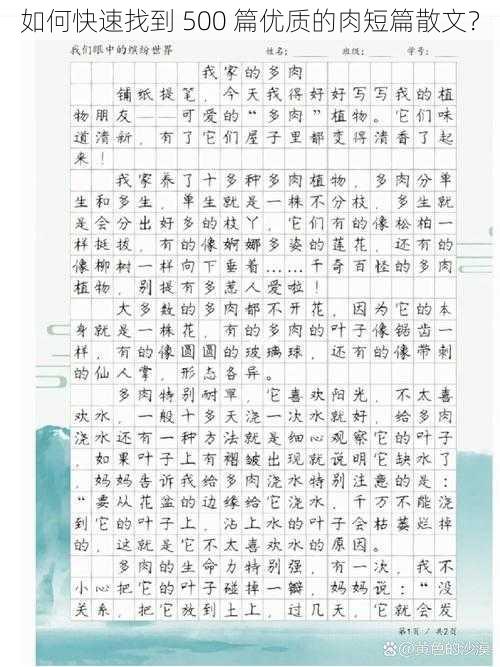 如何快速找到 500 篇优质的肉短篇散文？
我们眼中的缤纷世界 姓名： 班级： 学号：
我家的多肉
铺纸提笔，今天我得好好写写我的植
物朋友——可爱的“多肉”植物。它们味
道清新，有了它们屋子里都变得清香了起
来！
我家养了十多种多肉植物，多肉分单
生和多生，单生就是一株不分枝，多生就
是会分出好多的枝丫，它们有的像松柏一
样挺拔，有的像婀娜多姿的莲花，还有的
像柳树一样向下垂着……千奇百怪的多肉
植物，别提有多惹人爱啦！
大多数的多肉都不开花，因为它的本
身就是一株花，有的多肉的叶子像锯齿一
样，有的像圆圆的玻璃球，还有的像带刺
的仙人掌，形态各异。
多肉特别耐旱，它喜欢阳光，不太喜
欢水，一般十多天浇一次水就好，给多肉
浇水还有一种方法就是细心观察它的叶子
，如果叶子上有褶皱出现就说明它缺水了
，妈妈告诉我给多肉浇水特别注意的是：
“要从花盆的边缘给它浇水，千万不能浇
到它的叶子上，沾上水的叶子会枯萎烂掉
的，这就是它不太喜欢水的原因。
多肉的生命力特别强，有一次，我不
小心把它的叶子碰掉一瓣，妈妈说：“没
关系，把它放到土上，过几天，它就会发
第1页 / 共2页
@黄色的沙漠